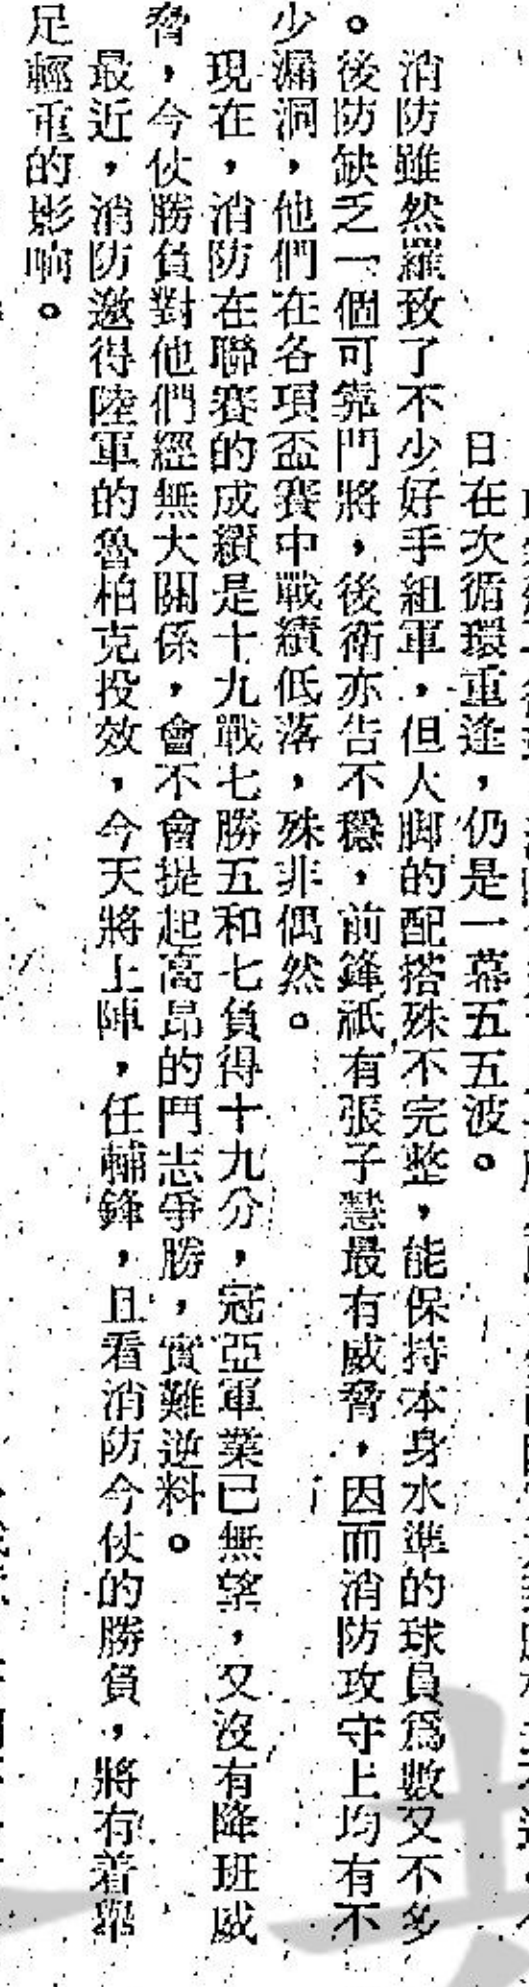 日在次循環重逢，仍是一幕五五波。
消防雖然羅致了不少好手組軍，但人脚的配搭殊不完整，能保持本身水準的球員爲數又不多
。後防缺乏一個可靠門將，後衛亦告不穩，前鋒祇有張子慧最有威脅，因而消防攻守上均有不
少漏洞，他們在各項盃賽中戰績低落，殊非偶然。
現在，消防在聯賽的成績是十九戰七勝五和七負得十九分，冠亞軍業已無望，又沒有降班威
脅，今仗勝負對他們經無大關係，會不會提起高昂的鬥志爭勝，實難逆料。
最近，消防邀得陸軍的魯柏克投效，今天將上陣，任輔鋒，且看消防今仗的勝負，將有着舉
足輕重的影响。